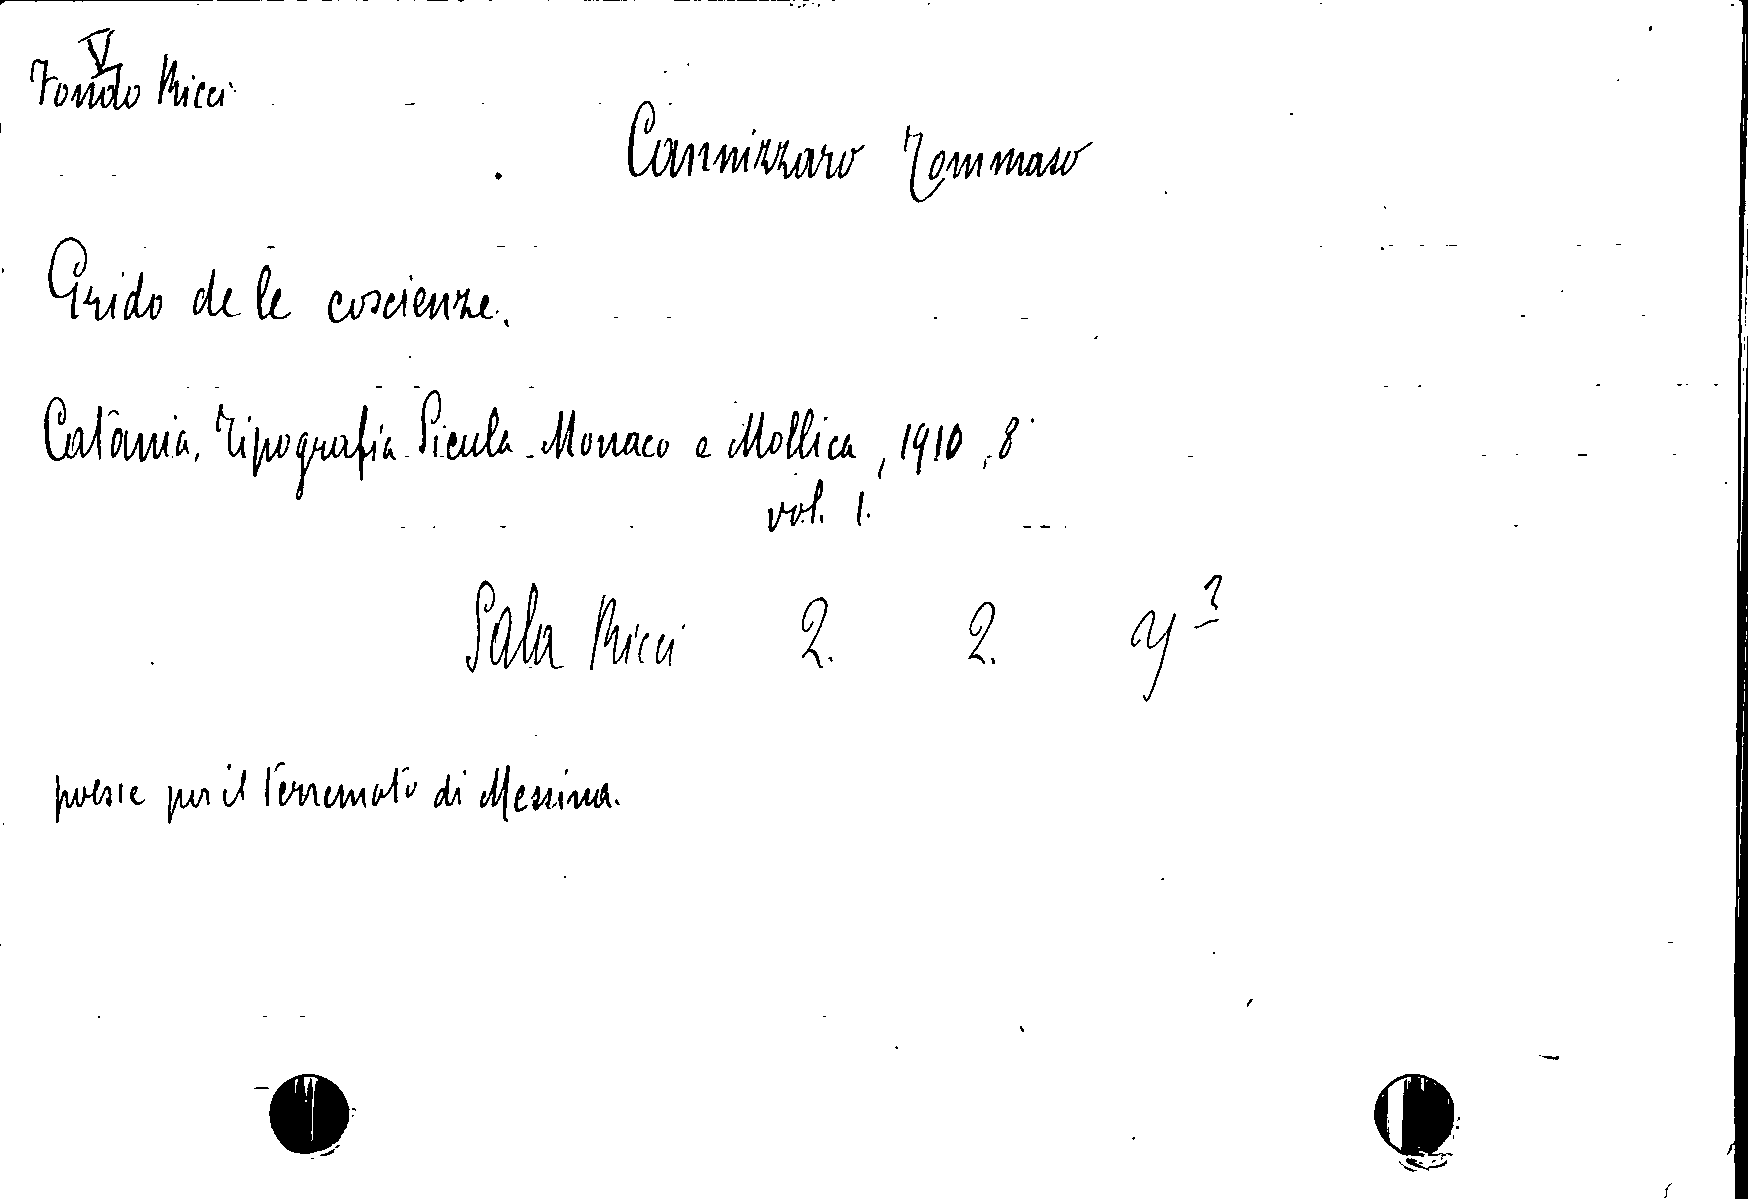 V
Fondo Ricci
Cannizzaro Tommaso
Grido de le coscienze.
Catania, Tipografia Sicula Monaco e Mollica, 1910, 8°
vol. 1.
Sala Ricci 2. 2. y 3
poesie per il terremoto di Messina.